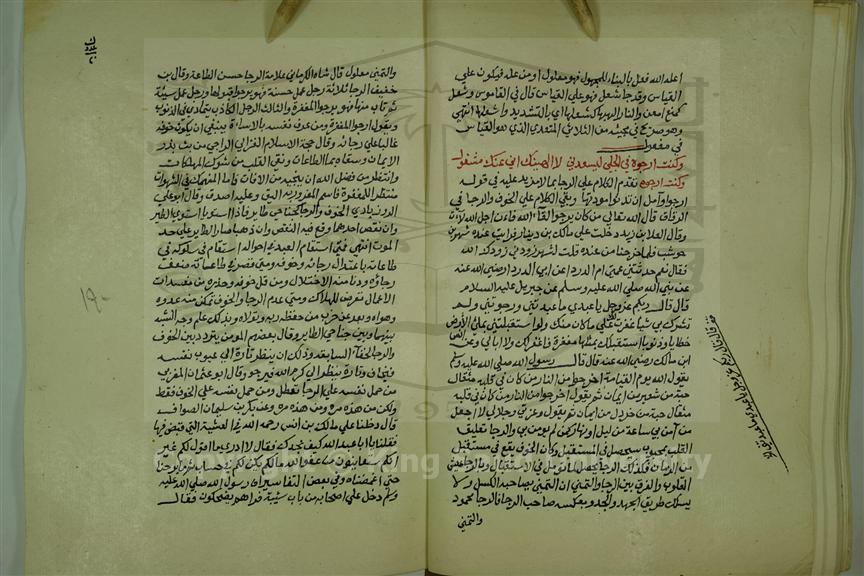 اعله الله فعل بالبناء للمجهول فهو معلول او من عله فيكون على
القياس وقد جا شعل فهو على القياس قال في القاموس وشعل
كمنع امعن والنار الهبها كشعلها اي بالتشديد واشعلها انتهى
وهو صريح في مجيئه من الثلاثي المتعدي الذي هو القياس
في مفعول
وكنت ارجوه في الجلى ليسعدني لا الهينك اني عنك مشغول
وكنت ارجوه تقدم الكلام على الرجا بما لا مزيد عليه في قوله
ارجو وآمل ان تدنو مودتها وبقي الكلام على الخوف والرجا في
الرقاق قال الله تعالى من كان يرجو لقاء الله فان اجل الله لآت
وقال العلا بن زيد دخلت على مالك بن دينار فرايت عنده شهر بن
حوشب فلما خرجنا من عنده قلت لشهر زودني زودك الله
فقال نعم حدثتني عمتي ام الدرداء عن ابي الدرداء رضي الله عنه
عن نبي الله صلى الله عليه وسلم عن جبريل عليه السلام
قال قال ربكم عز وجل يا عبدي ما عبدتني ورجوتني ولم
تشرك بي شيا غفرت لك على ما كان منك ولو استقبلتني بملئ الأرض
خطايا وذنوبا استقبلتك بمثلها مغفرة فاغفر لك ولا ابالي وعن انس
ابن مالك رضي الله عنه قال قال رسول الله صلى الله عليه وسلم
يقول الله يوم القيامة اخرجوا من النار من كان في قلبه مثقال
حبة من شعير من ايمان ثم يقول اخرجوا من النار من كان في قلبه
مثقال حبة من خردل من ايمان ثم يقول وعزتي وجلالي لا اجعل
من آمن بي ساعة من ليل او نهار كمن لم يؤمن بي والرجا تعليق
القلب بمحبوب سيحصل في المستقبل وكما ان الخوف يقع في مستقبل
من الزمان فكذلك الرجا يحصل لما يؤمل في الاستقبال وبالرجا عيش
القلوب والفرق بين الرجا والتمني ان التمني يصاحبه الكسل ولا
يسلك طريق الجهد والجد وبعكسه صاحب الرجا فالرجا محمود
والتمني
والتمني معلول قال شاه الكرماني علامة الرجا حسن الطاعة وقال بن
خفيف الرجا ثلاثة رجل عمل حسنة فهو يرجو قبولها ورجل عمل سيئة
ثم تاب منها فهو يرجو المغفرة والثالث الرجل الكاذب يتمادى في الذنوب
ويقول ارجو المغفرة ومن عرف نفسه بالاساءة ينبغي ان يكون خوفه
غالبا على رجائه وقال حجة الاسلام الغزالي الراجي من بث بذر
الايمان وسقاه بماء الطاعات ونقى القلب من شوك المهلكات
وانتظر من فضل الله ان ينجيه من الافات واما المنهمك في الشهوات
منتظرا للمغفرة فاسم المغرور به اليق وعليه اصدق وقال ابو علي
الروذبادي الخوف والرجا كجناحي طاير فاذا استويا استوى الطير
وان نقص احدهما وقع فيه النقص وان ذهبا صار الطاير على حد
الموت انتهى فمتى استقام العبد في احواله استقام في سلوكه في
طاعاته باعتدال رجائه وخوفه ومتى قصر في طاعاته ضعف
رجاؤه ودنا منه الاختلال ومن قل خوفه وحذره من مفسدات
الاعمال تعرض للهلاك ومتى عدم الرجا والخوف تمكن منه عدوه
وهواه وبعد عن حزب من حفظه ربه وتولاه وبذلك علم وجه الشبه
بينهما وبين جناحي الطاير وقال بعضهم المؤمن يتردد بين الخوف
والرجا لخفاء السابقة وذلك ان ينظر تارة الى عيوب نفسه
فيخاف وتارة ينظر الى كرم الله فيرجو وقال ابو عثمان المغربي
من حمل نفسه على الرجا تعطل ومن حمل نفسه على الخوف قنط
ولكن من هذه مرة ومن هذه مرة وعن بكر بن سليمان الصواف
قال دخلنا على مالك بن انس رحمه الله في العشية التي قبض فيها
فقلنا يا ابا عبد الله كيف تجدك فقال لا ادري ما اقول لكم غير
انكم ستعاينون من عفو الله ما لم يكن لكم في حساب ثم ما برحنا
حتى اغمضناه وفي بعض التفاسير ان رسول الله صلى الله عليه
وسلم دخل على اصحابه من باب بني شيبة فراهم يضحكون فقال
١٩٠